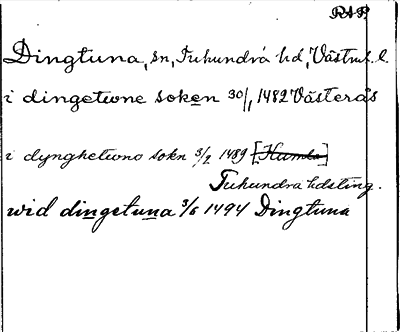 RAP.
Dingtuna, sn, Tuhundra hd, Västml. l.
i dingetwne soken 30/11, 1482 Västerås
i dynghetwno sokn 3/2 1489 [Kumla]
Tuhundra hdsting.
wid dingetuna 3/6 1494 Dingtuna